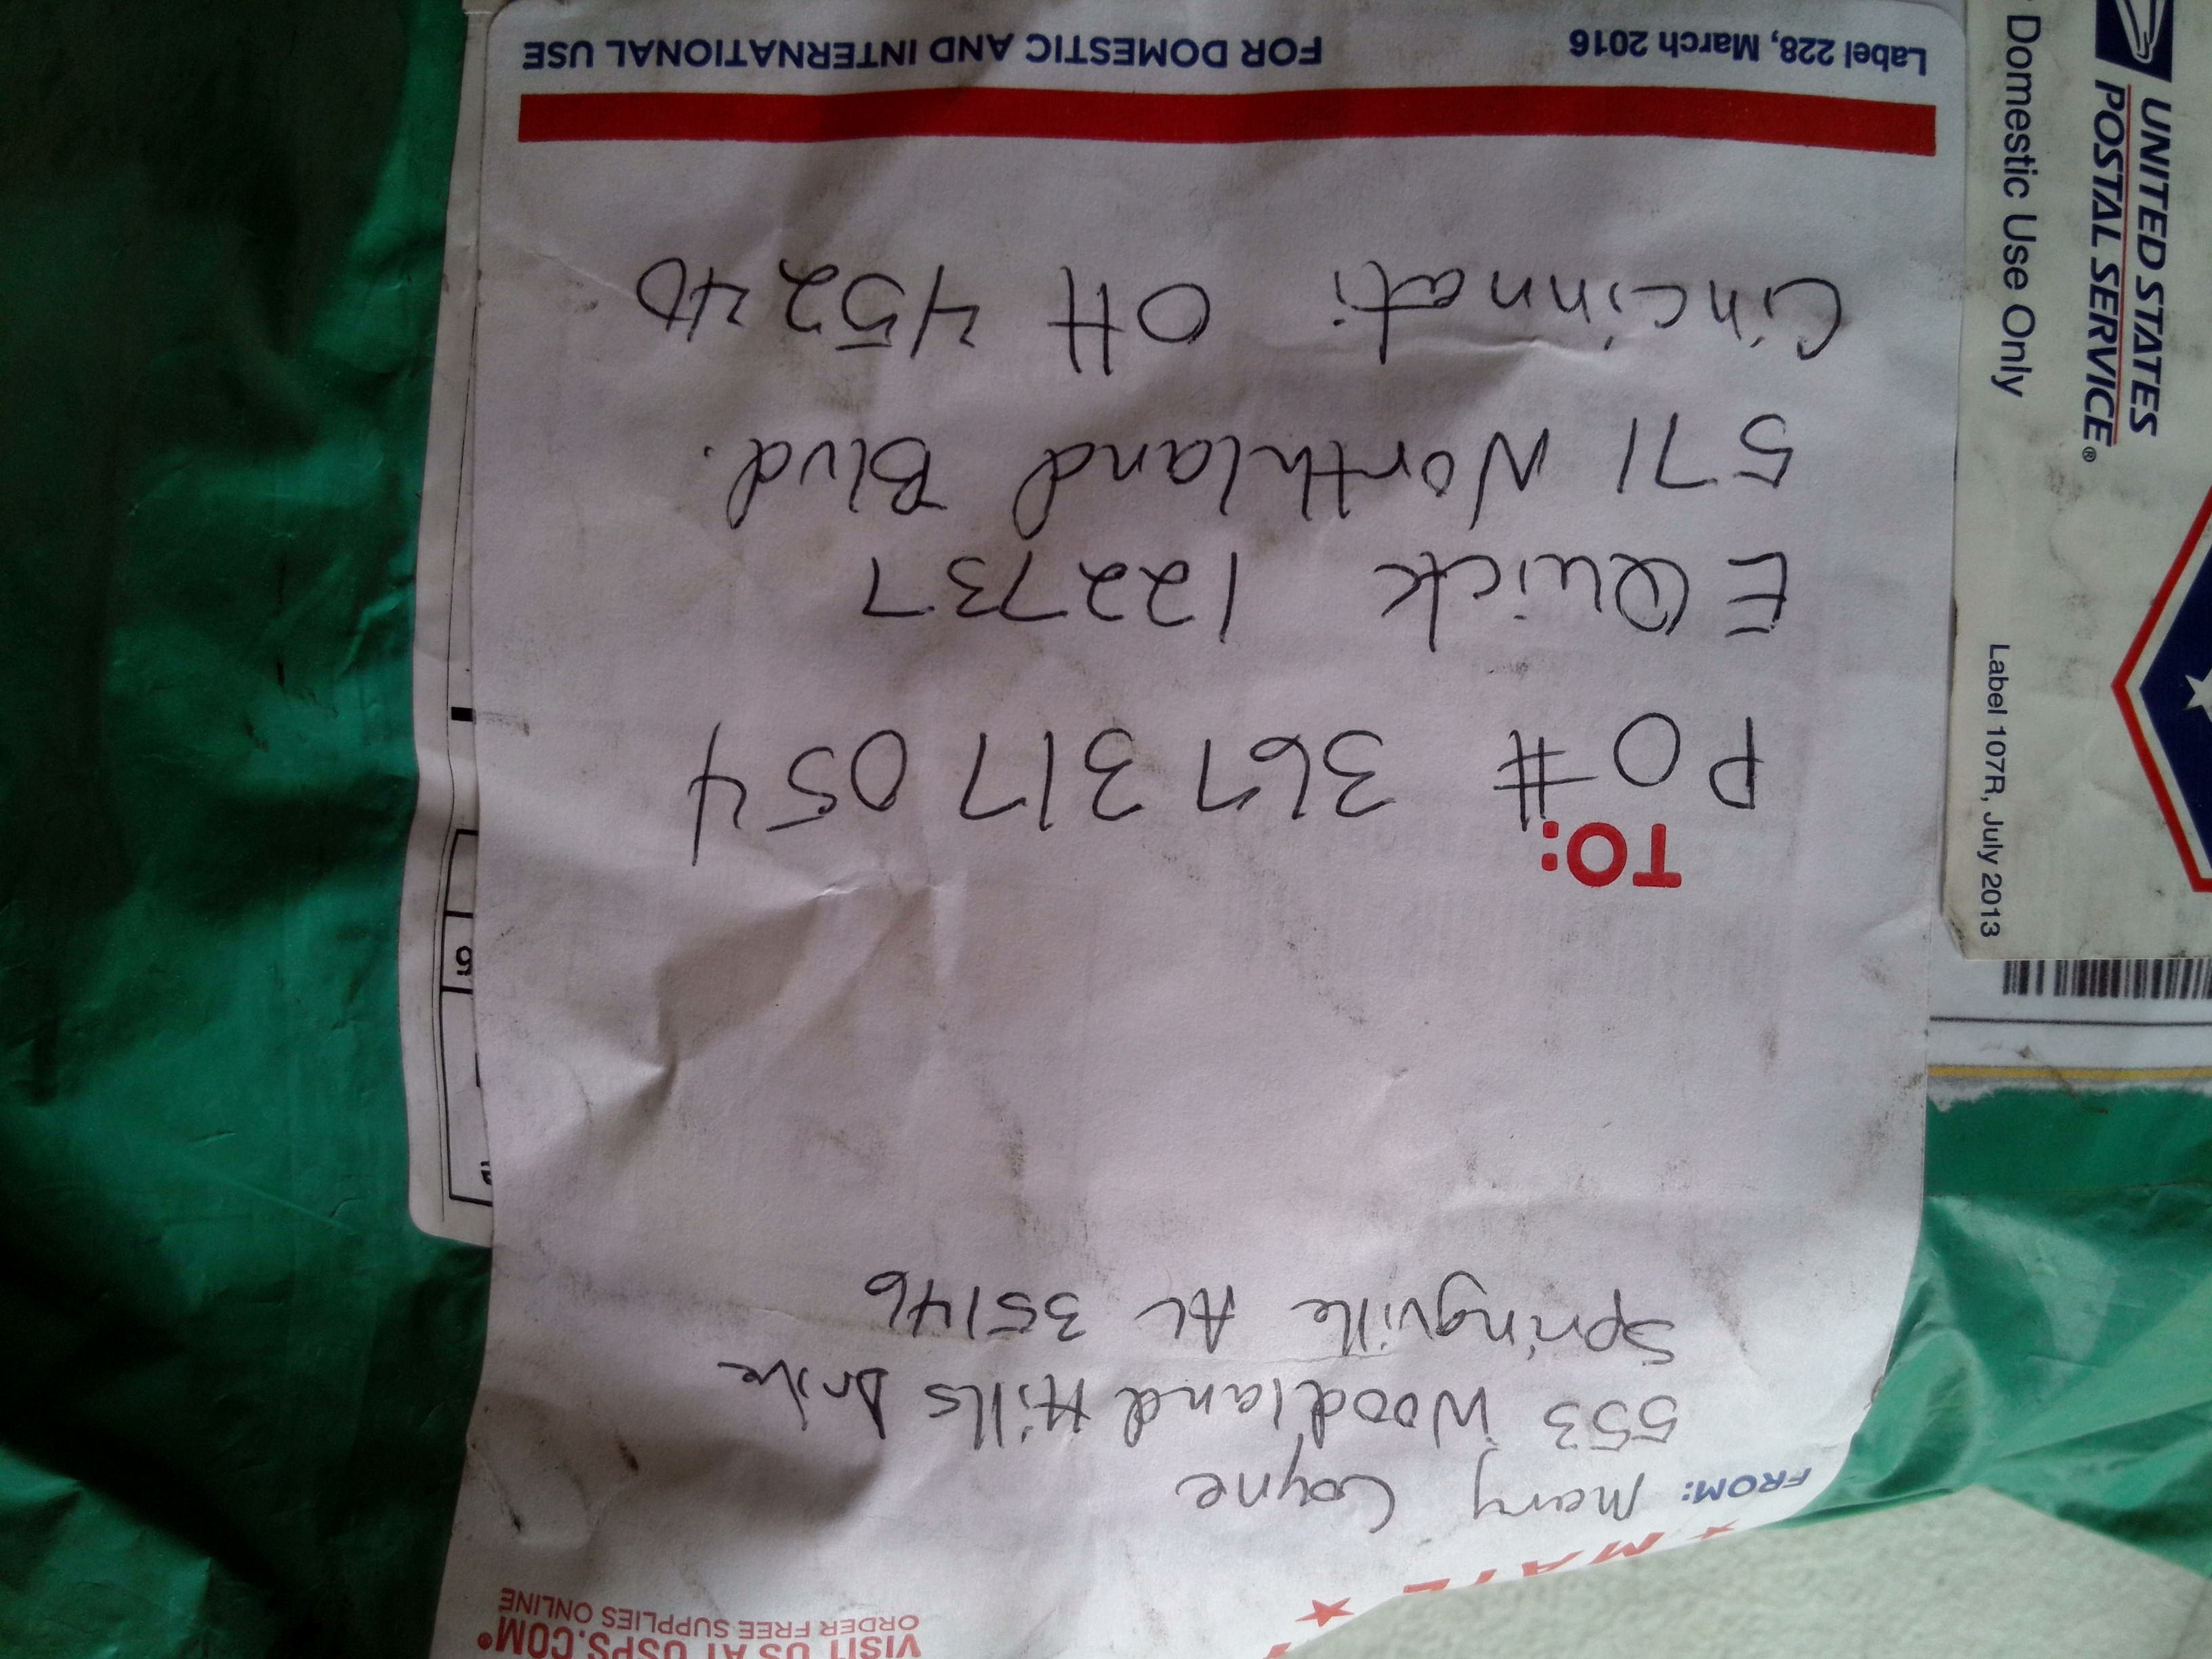 VISIT US AT USPS.COM®
ORDER FREE SUPPLIES ONLINE
FROM: Mary Coyne
553 Woodland Hills Drive
Springville AL 35146
TO:
PO # 367 317 054
EQuick 122737
571 Northland Blvd.
Cincinnati OH 45240
Label 228, March 2016
FOR DOMESTIC AND INTERNATIONAL USE
UNITED STATES
POSTAL SERVICE®
Domestic Use Only
Label 107R, July 2013